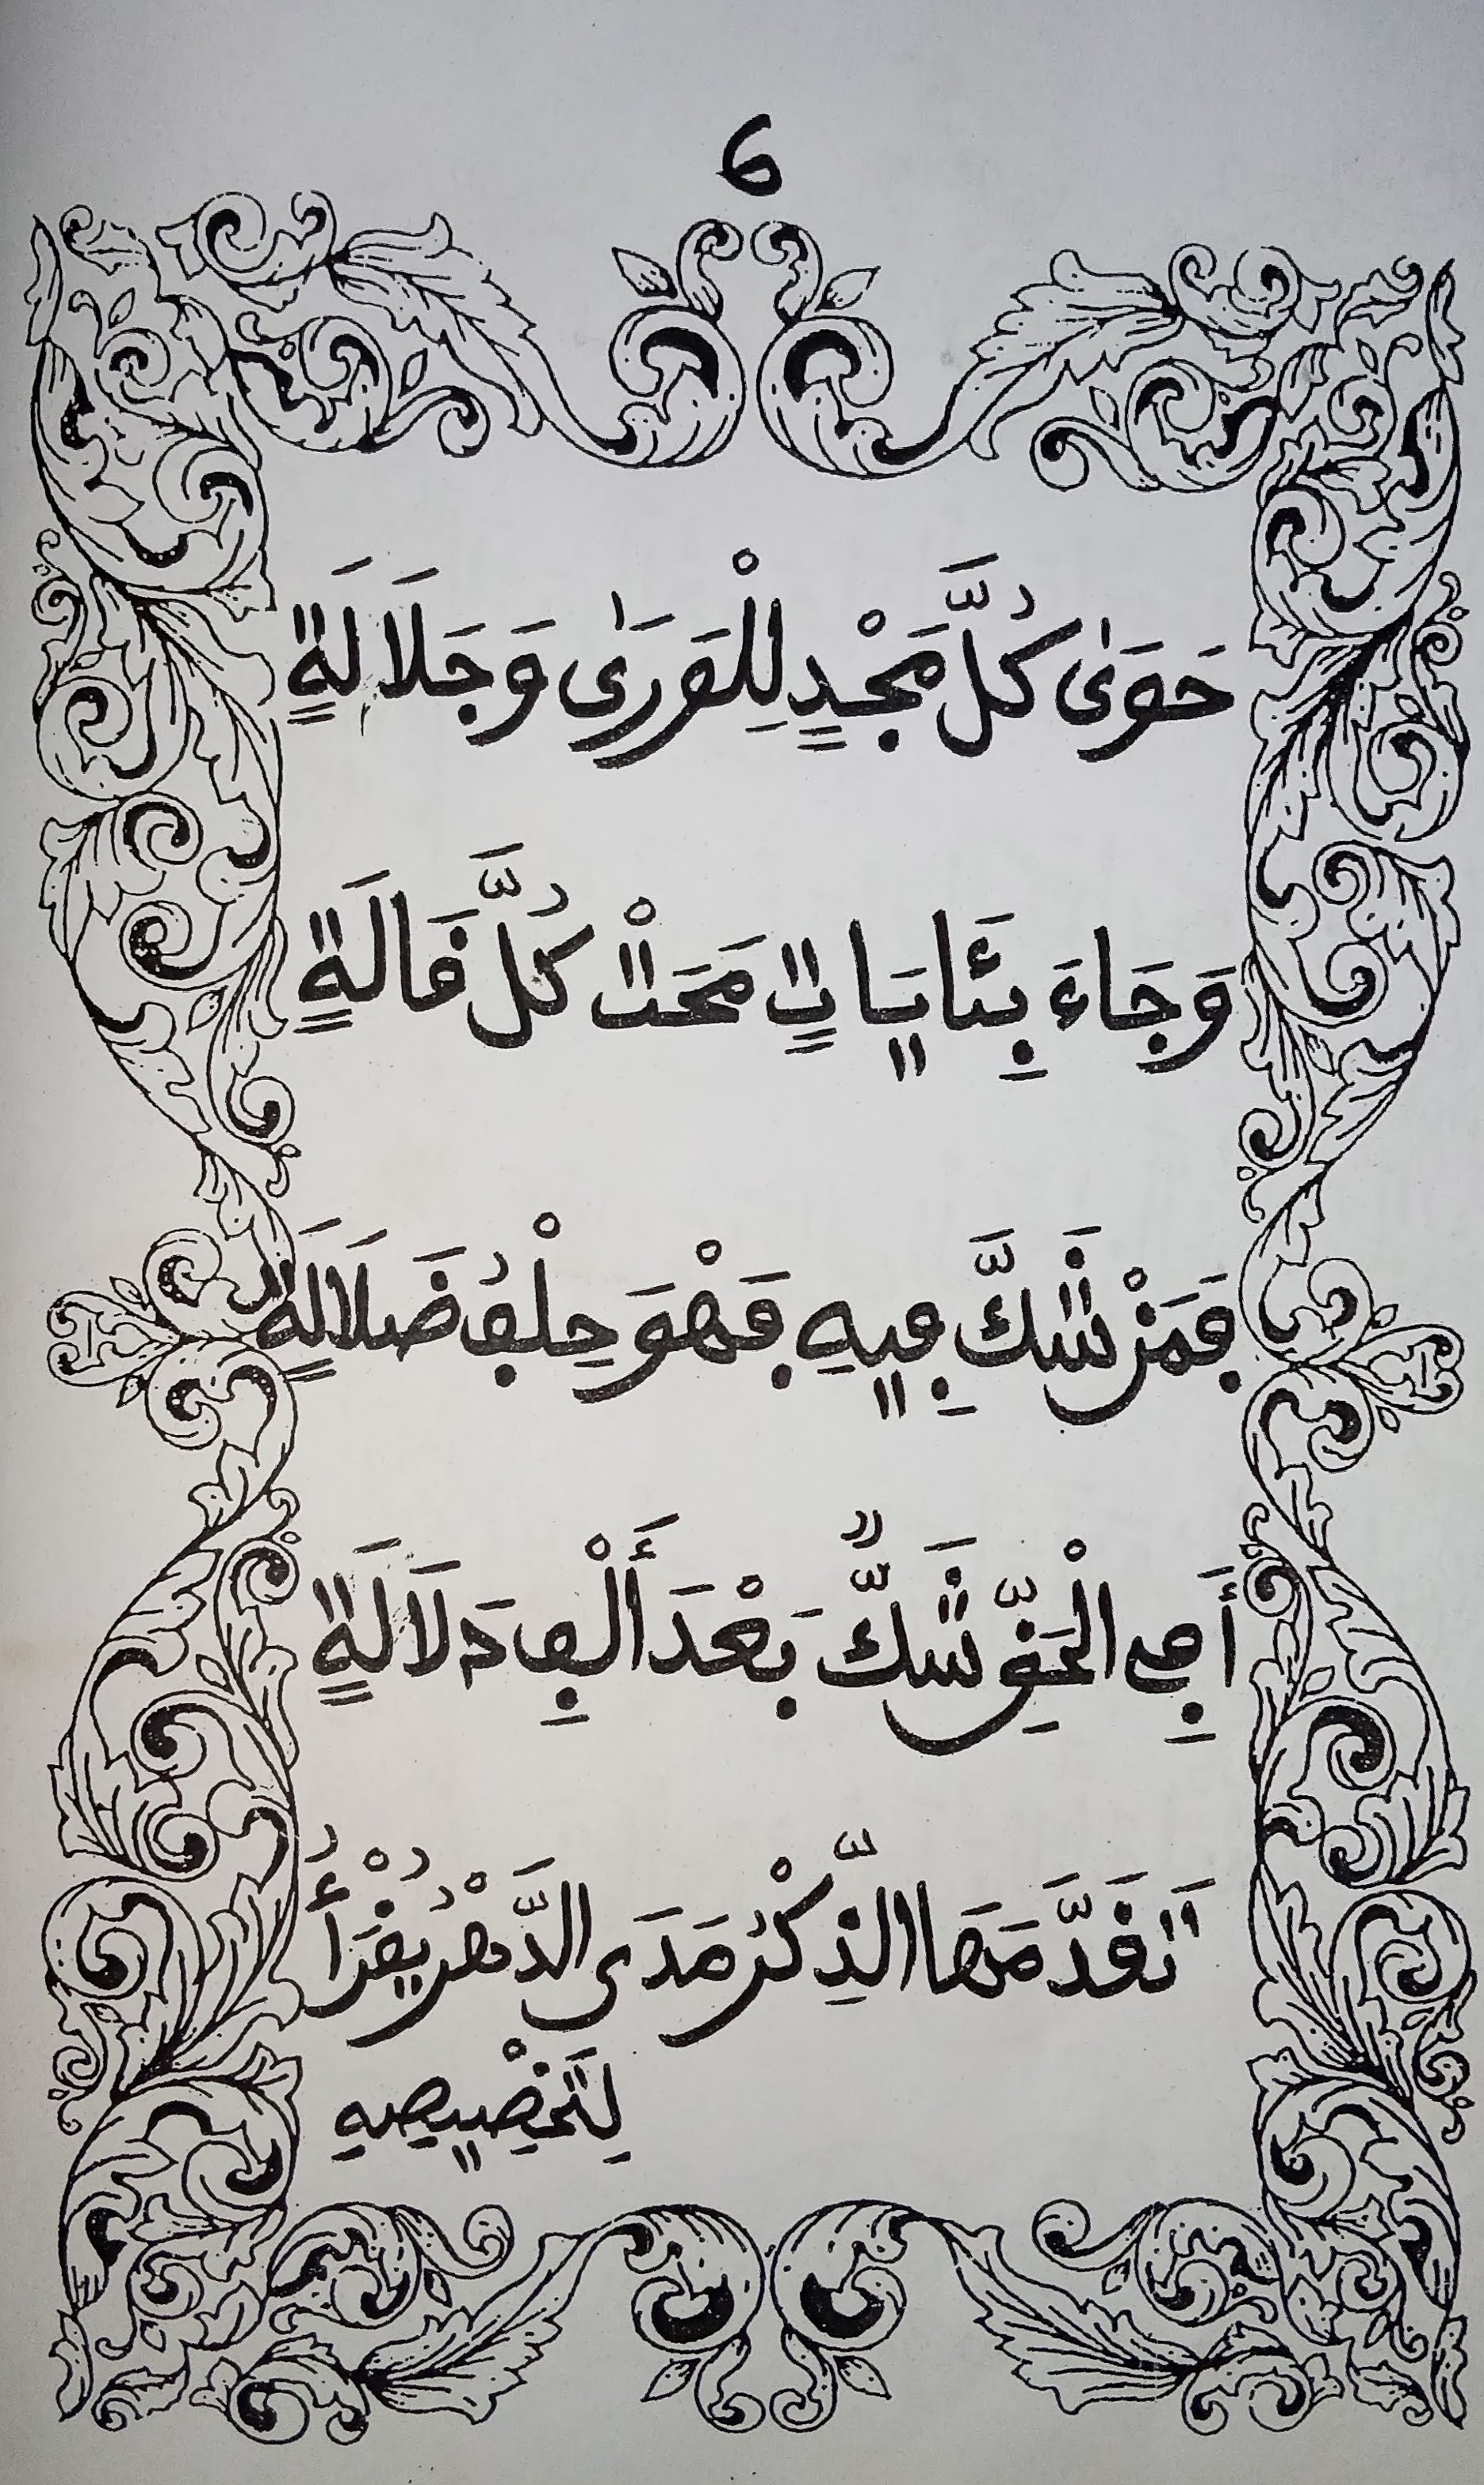 6
حَوَىٰ كُلَّ مَجْدٍ لِلْوَرَىٰ وَجَلَالَةٍ
وَجَاءَ بِـَٔايَاتٍ مَحَتْ كُلَّ قَالَةٍ
فَمَنْ شَكَّ فِيهِ فَهْوَ حِلْفُ ضَلَالَةٍ
أَفِي الْحَقِّ شَكٌّ بَعْدَ أَلْفِ دَلَالَةٍ
تَقَدَّمَهَا الذِّكْرُ مَدَى الدَّهْرِ يُقْرَأُ
لِتَخْصِيصِهِ